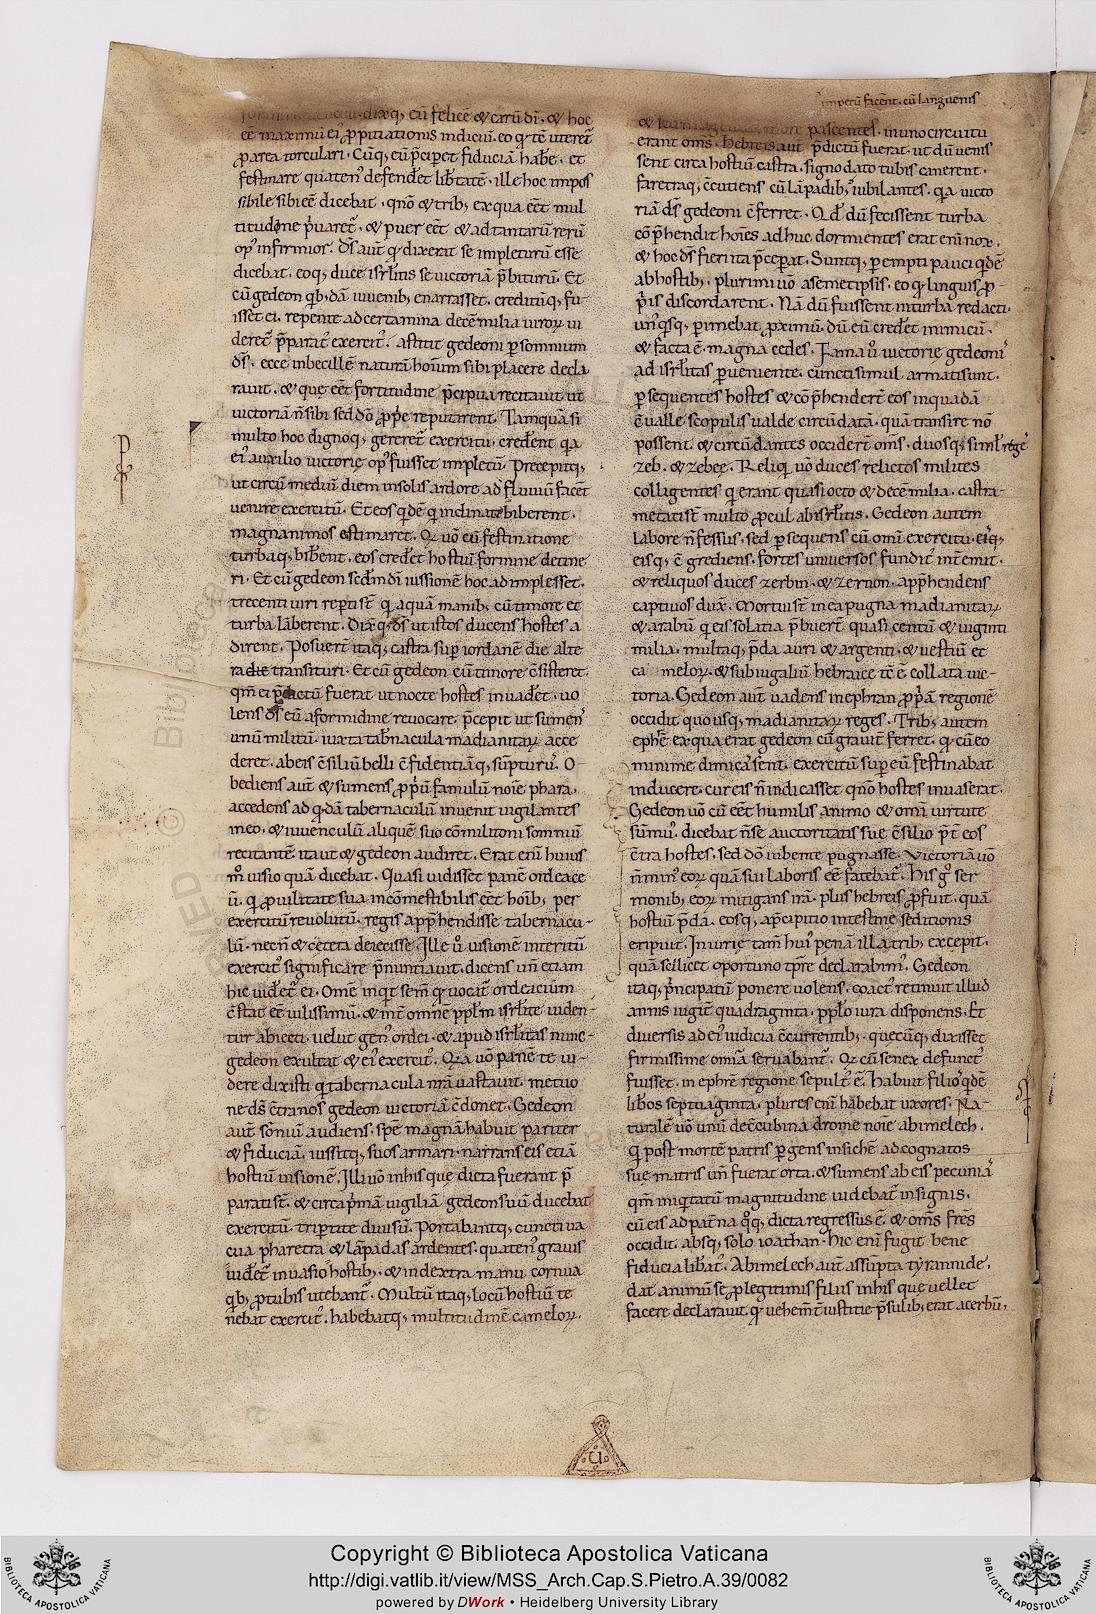 impetū facerēt. cū languenis
dixq; eū felicē & carū dī. & hoc
eē maximū ei' ꝓpitiationis indiciū. eo q̄ tē uteret̄
ꝓ area torculari. Cūq; eū p̄ciperet fiduciā habe. et
festinare quaten' defenderet libertatē. ille hoc impos
sibile sibi eē dicebat. qn̄o & trib; ex qua eēt mul
titudine p̄uaret̄. & puer eēt & ad tantarū rerū
op' infirmior. D̄s aut̄ q̄ dixerat se impleturū esse
dicebat. eoq; duce isrl̄itis se uictoriā p̄biturū. Et
cū gedeon qib;dā iuuenib; enarrasset. creditūq; fu-
isset ei. repente ad certamina decē milia uiroꝝ ui
deret̄ p̄parat' exercit'. astitit gedeoni ꝑ somnium
d̄s. ecce inbecillē naturā hoīum sibi placere decla
rauit. & quę eēt fortitudine p̄cipua recitauit ut
uictoriā n̄ sibi sed dō ꝓp̄e reputarent. Tamquā si
multo hoc dignoq; gereret̄ exercitu. crederent qa
ei' auxilio uictorię op' fuisset impletū. Precepitq;
ut circū mediū diem in solis ardore ad fluuiū facēt
uenire exercitū. Et eos qdē qi inclinate biberent.
magnanimos estimaret. Qi uō cū festinatione
turbaq; biberent. eos crederet hostiū formine detine
ri. Et cū gedeon scd̄m dī iussionē hoc adimplesset.
trecenti uiri rep̄ti st̄ qi aquā manib; cū timore et
turba lāberent. Dixq; d̄s ut istos ducens hostes a
dirent. Posuert̄ itaq; castra sup iordanē die alte
ra die transituri. Et cū gedeon cū timore c̄sisteret.
qm̄ ei p̄dictū fuerat ut nocte hostes inuaderet. uo
lens d̄s eū a formidine reuocare. p̄cepit ut sumen'
unū militū. iuxta tab̄nacula madianitaꝝ acce
deret. ab eis c̄siliū belli c̄fidentiāq; sūpturu'. O-
bediens aut̄ & sumens ꝓp̄ū famulū noīe phara.
accedens ad qdā tabernaculū inuenit uigilantes
in eo. & iuuenculū aliquē suo cōmilitoni somniū
recitantē. ita ut & gedeon audiret. Erat enī huius
m̊ uisio quā dicebat. Quasi uidisset panē ordeace
ū. qi ꝓ uilitate sua incōmestibilis eēt hoīb; per
exercitū reuolutū. regis app̄hendisse tabernacu-
lū. necn̄ & cęteta deiecisse. Ille ů uisionē interitū
exercit' significare p̄nuntiauit. dicens un̄ etiam
hic uideret̄ ei. Omē inqit sem̄ qd̄ uocat̄ ordeicium
c̄stat eē uilissimū. & int̄ omnē ppl̄m isrl̄ite uiden-
tur abiecti. uelut gen' ordei. & apud isrl̄itas nunc-
gedeon exultat & ei' exercit'. Qia uō panē te ui-
dere dixisti qi tabernacula nr̄a uastauit. metuo
ne d̄s c̄tra nos gedeon uictoriā c̄donet. Gedeon
aut̄ sōniū audiens. spē magnā habuit pariter
& fiduciā. iussitq; suos armari. narrans eis etiā
hostiū uisionē. Illi uō in his quę dicta fuerant p̄
parati st̄. & circa p̄mā uigiliā. gedeon suū ducebat
exercitū. tripertite diuisū. Portabantq; cuncti ua
cua pharetra & lāpadas ardentes. quaten' grauis
uideret̄ inuasio hostib;. & in dextra manu cornua
qib; ꝓ tubis utebant̄. Multū itaq; locū hostiū te
nebat exercit'. habebatq; multitudinē cameloꝝ.
pascentes. in uno circuitu
erant om̄s. Hebreis aut̄ p̄dictū fuerat. ut dū uenis
sent circa hostiū castra. signo dato tubis canerent.
faretraq; c̄cutiens cū lāpadib; iubilantes. qa uicto
riā d̄s gedeoni c̄ferret. Qd̄ dū fecissent turba
cōp̄hendit hoīes adhuc dormientes erat enī nox.
& hoc d̄s fieri ita p̄ceperat. Suntq; perempti pauci qdē
ab hostib;. plurimi uō a semetipsis. eo qd̄ linguis ꝓ-
p̄is discordarent. Nā dū fuissent in turbā redacti.
un'qsq; perimebat ꝓximū. dū eū crederet inimicū.
& facta ē. magna cedes. Fama ů uictorię gedeoni'
ad isrl̄itas perueniente. cuncti simul armati sunt.
persequentes hostes & cōp̄hendert̄ eos in quadā
c̄ualle scopulis ualde circūdatā. quā transire nō
possent. & circūdantes occidert̄ om̄s. duosq; simul reges
zeb. & zebee. Reliqi uō duces relictos milites
colligentes qi erant quasi octo & decē milia. castra-
metati st̄ multo ꝓcul ab isrl̄itis. Gedeon autem
labore n̄ fessus. sed persequens cū omī exercitu. eisq;
eisq; c̄grediens. fortes uniuersos fundit' intemit.
& reliquos duces zerbin. & zernon. app̄hendens
captiuos dux. Mortui st̄ in ea pugna madianitaꝝ
& arabū qi eis solatia p̄buert̄. quasi centū & uiginti
milia. multaq; p̄da auri & argenti. & uestiū et
ca meloꝝ. & subiugaliū hebraice tc̄ ē collata uic-
toria. Gedeon aut̄ uadens in ephran ꝓp̄a regionē
occidit quo usq; madianitaꝝ reges. Trib; autem
ephē ex qua erat gedeon cū grauit̄ ferret. qd̄ cū eo
minime dimicassent. exercitū super eū festinabat
inducere. cur eis n̄ indicasset qn̄o hostes inuaserat.
Gedeon uō cū eēt humilis animo & omī uirtute
sūmu'. dicebat n̄ se auctoritatis suę c̄silio p̄t eos
c̄tra hostes. sed dō iubente pugnasse. Uictoriā uō
n̄ min' eoꝝ quā sui laboris eē fatebat̄. His g̊ ser
monib; eoꝝ mitigans irā. plus hebreis ꝓfuit. quā
hostiū p̄da. eosq; a p̄cipitio intestinę seditionis
eripuit. Iniurię tam̄ hui' penā illa trib; excepit.
quā scilicet oportuno tp̄re declarabim'. Gedeon
itaq; p̄ncipatū ponere uolens. coact' retinuit illud
annis iugit̄ quadraginta. pplō iura disponens. Et
diuersis ad ei' iudicia c̄currentib;. quęcūq; dixisset
firmissime omīa seruabant̄. Qi cū senex defunct'
fuisset. in ephrē regione sepult' ē. Habuit filios qdē
lib̄os septuaginta. plures enī habebat uxores. Na-
turalē uō unū de c̄cubina drome noīe abimelech.
Qi post mortē patris pergens in sichē ad cognatos
suę matris un̄ fuerat orta. & sumens ab eis pecuniā
qm̄ iniqitatū magnitudine uidebat̄ insignis.
cū eis ad pat̄na qoq; dicta regressus ē. & om̄s fr̄es
occidit. absq; solo ioathan. hic enī fugit bene
fiducia liberat'. Abimelech aut̄ assūpta tyrannide.
dat animū se ꝓ legitimis filiis in his quę uellet
facere declarauit. qd̄ uehem̄t̄ iustitię p̄sulib; erat acerbū.
U
Copyright © Biblioteca Apostolica Vaticana
http://digi.vatlib.it/view/MSS_Arch.Cap.S.Pietro.A.39/0082
powered by DWork • Heidelberg University Library
BIBLIOTECA APOSTOLICA VATICANA
BIBLIOTECA APOSTOLICA VATICANA